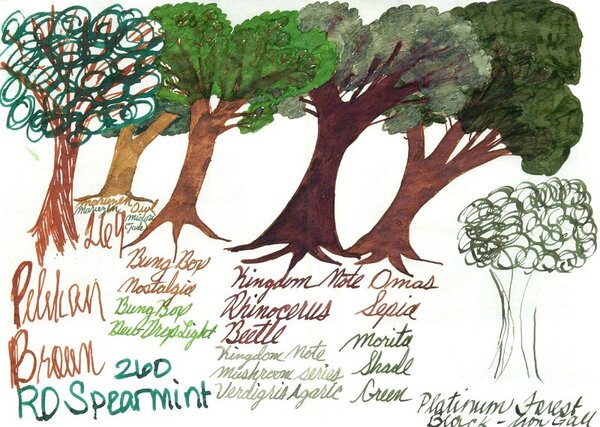 Maruzen Owl
Maruzen midori
Jade
269
Pelikan
Brown
260
RO Spearmint
Bung Box
Nostalgia
Bung Box
Dew Drop Light
Kingdom Note
Rhinocerus
Beetle
Kingdom Note
Mushroom series
Verdigris Agaric
Omas
Sepia
Morita
Shade
Green
Platinum Forest
Black - Iron Gall